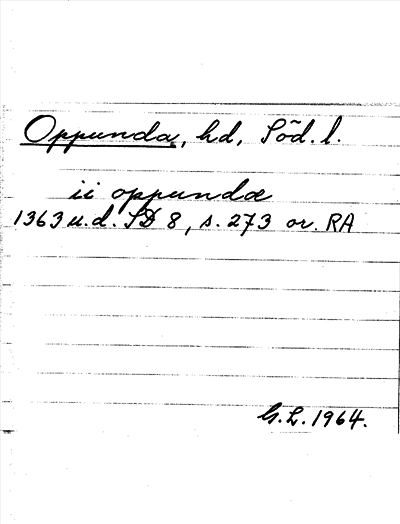 Oppunda, hd, Söd. l.
ii oppundæ
1363 u.d. SD 8, s. 273 or. RA
G.L. 1964.